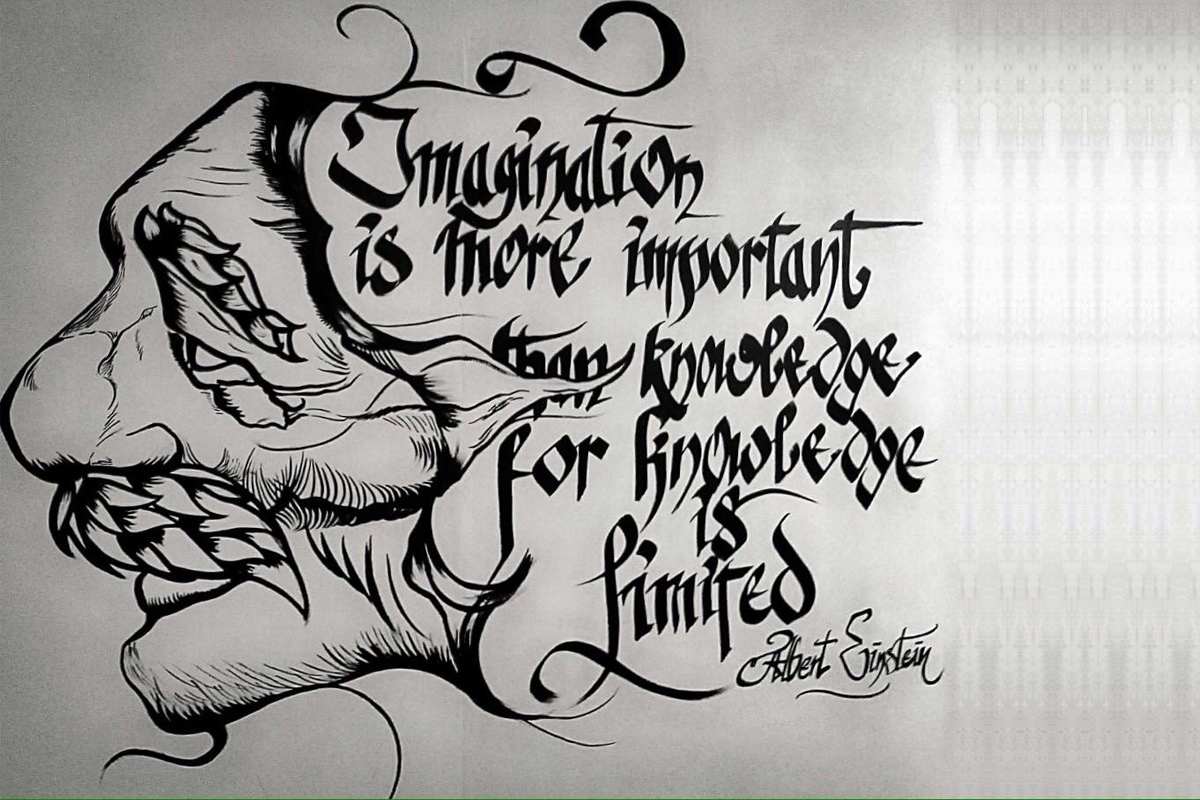 Imagination
is more important
than knowledge
for knowledge
is
limited
Albert Einstein